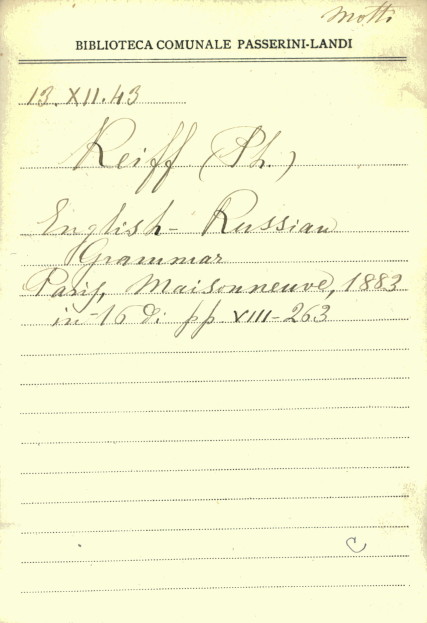 Motti
BIBLIOTECA COMUNALE PASSERINI-LANDI
13. XII. 43
Reiff (Ph.)
English - Russian
Grammar
Paris, Maisonneuve, 1883
in-16 di pp VIII-263
C